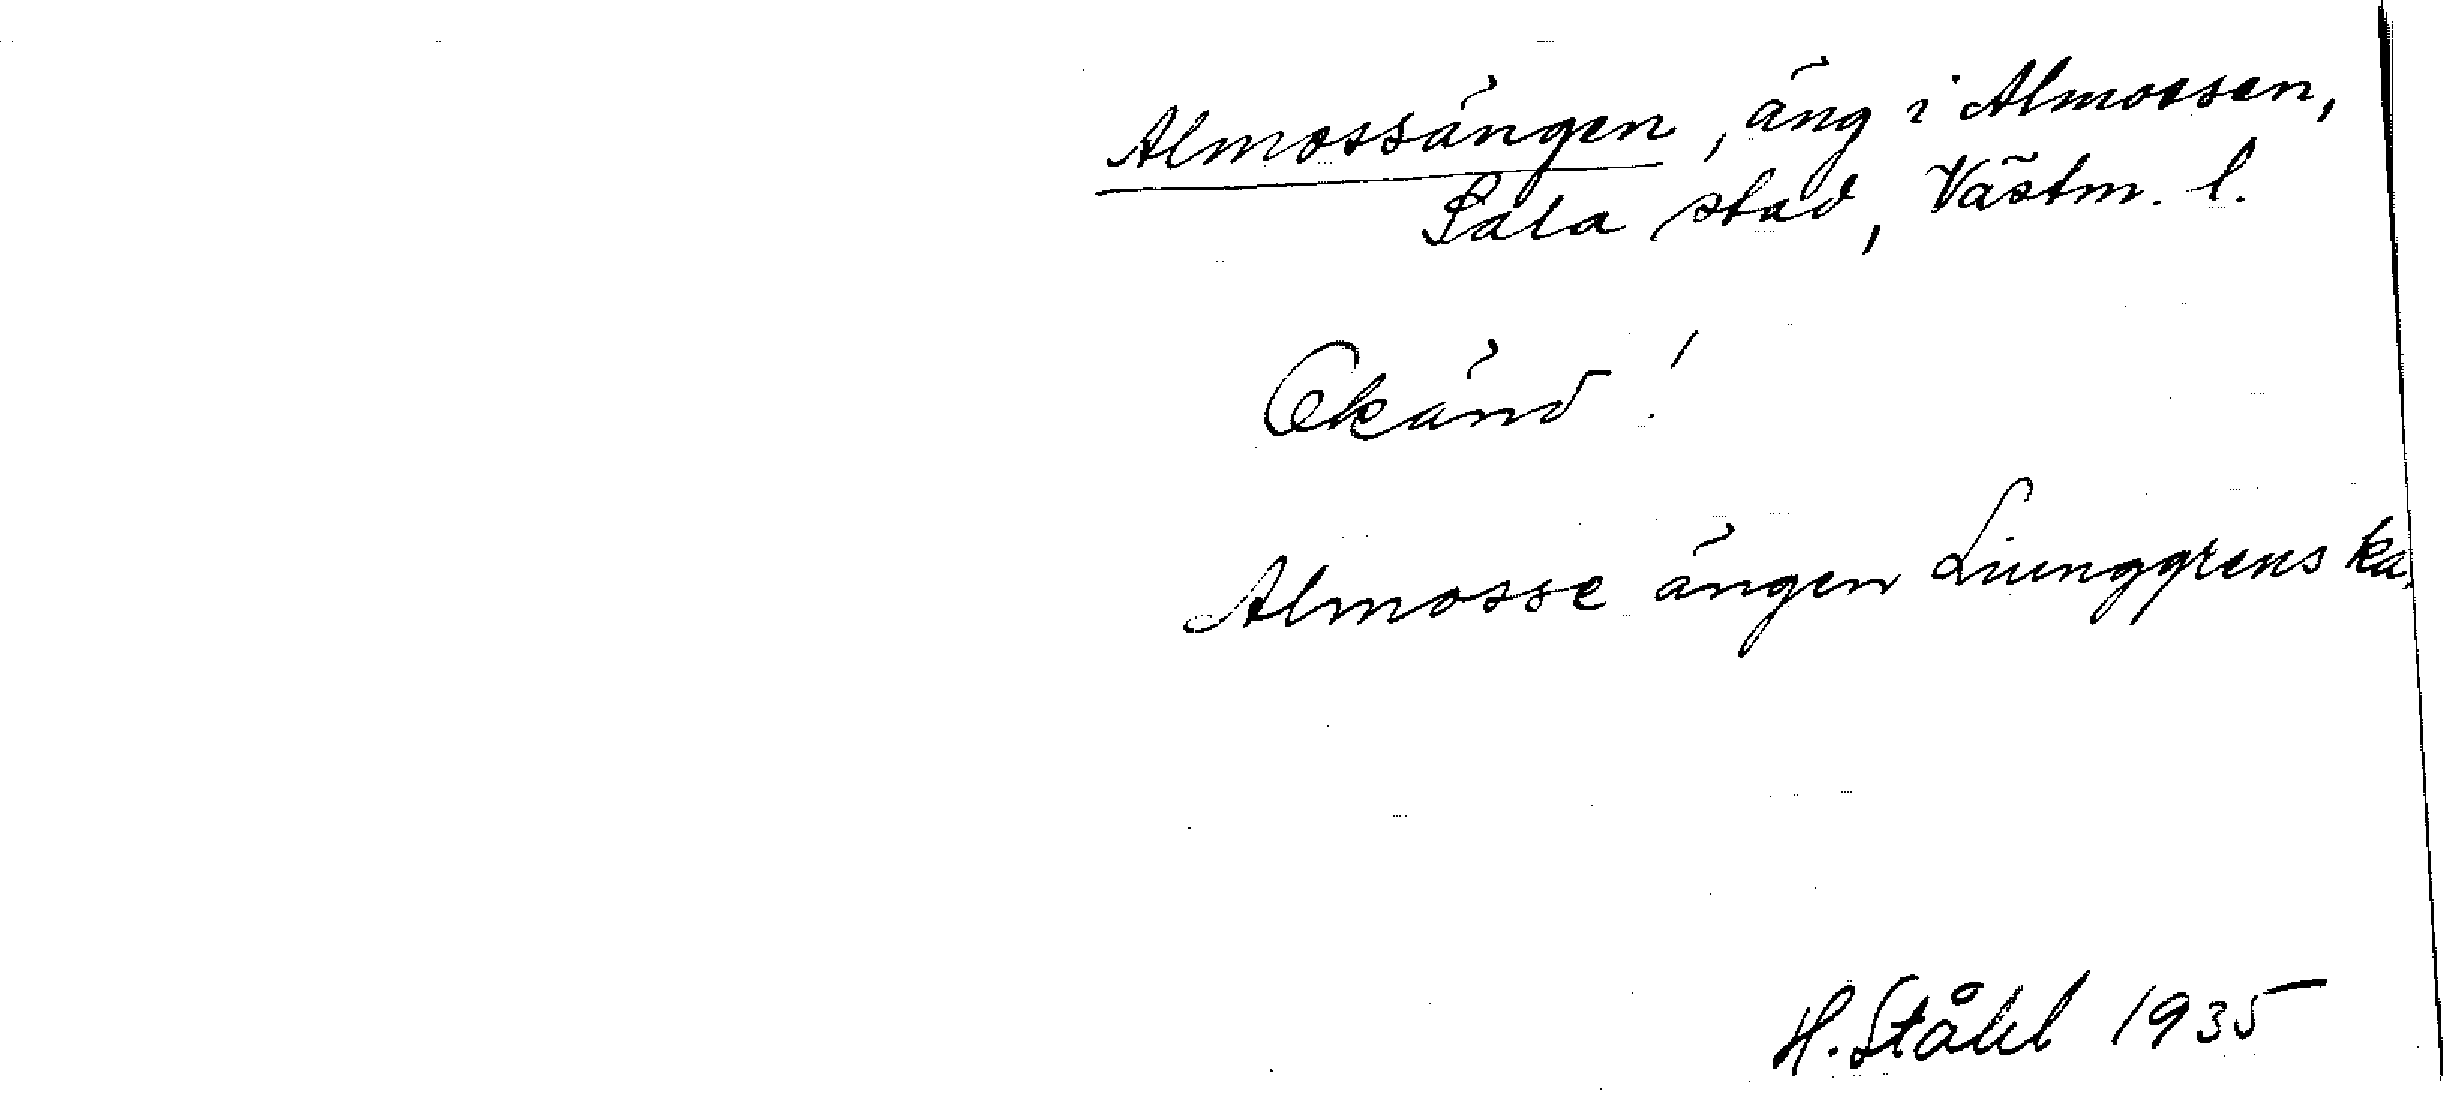 Almossängen, äng i Almossen,
Sala stad, Västm. l.
Okänd!
Almosse ängen Liunggrens ka.
H. Ståhl 1935